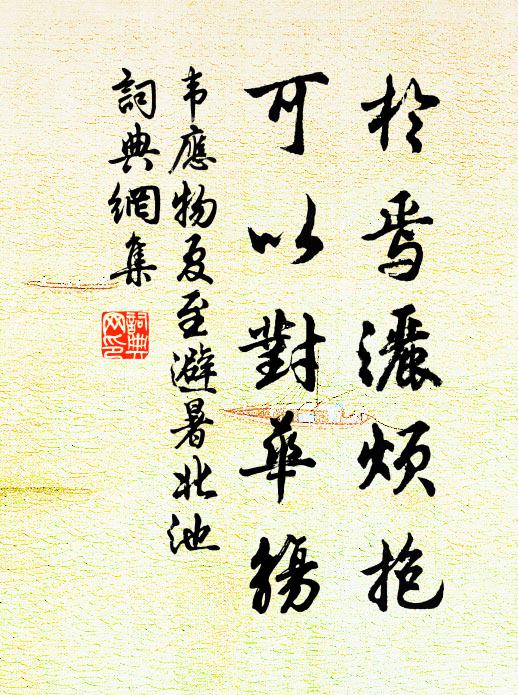 於焉灑煩抱
可以對華觴
韦應物夏至避暑北池
詞典網集
詞典
网印